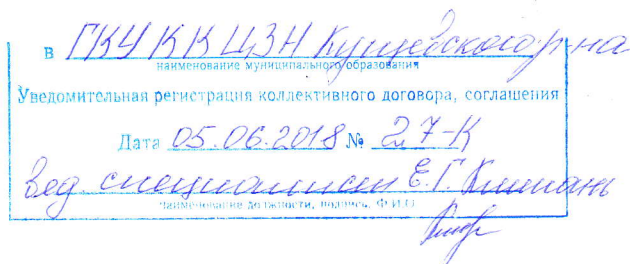 в ГКУ КК ЦЗН Кущевского р-на
наименование муниципального образования
Уведомительная регистрация коллективного договора, соглашения
Дата 05.06.2018 № 27-К
вед специалист Е.Г.
наименование должности, подпись, Ф.И.О.